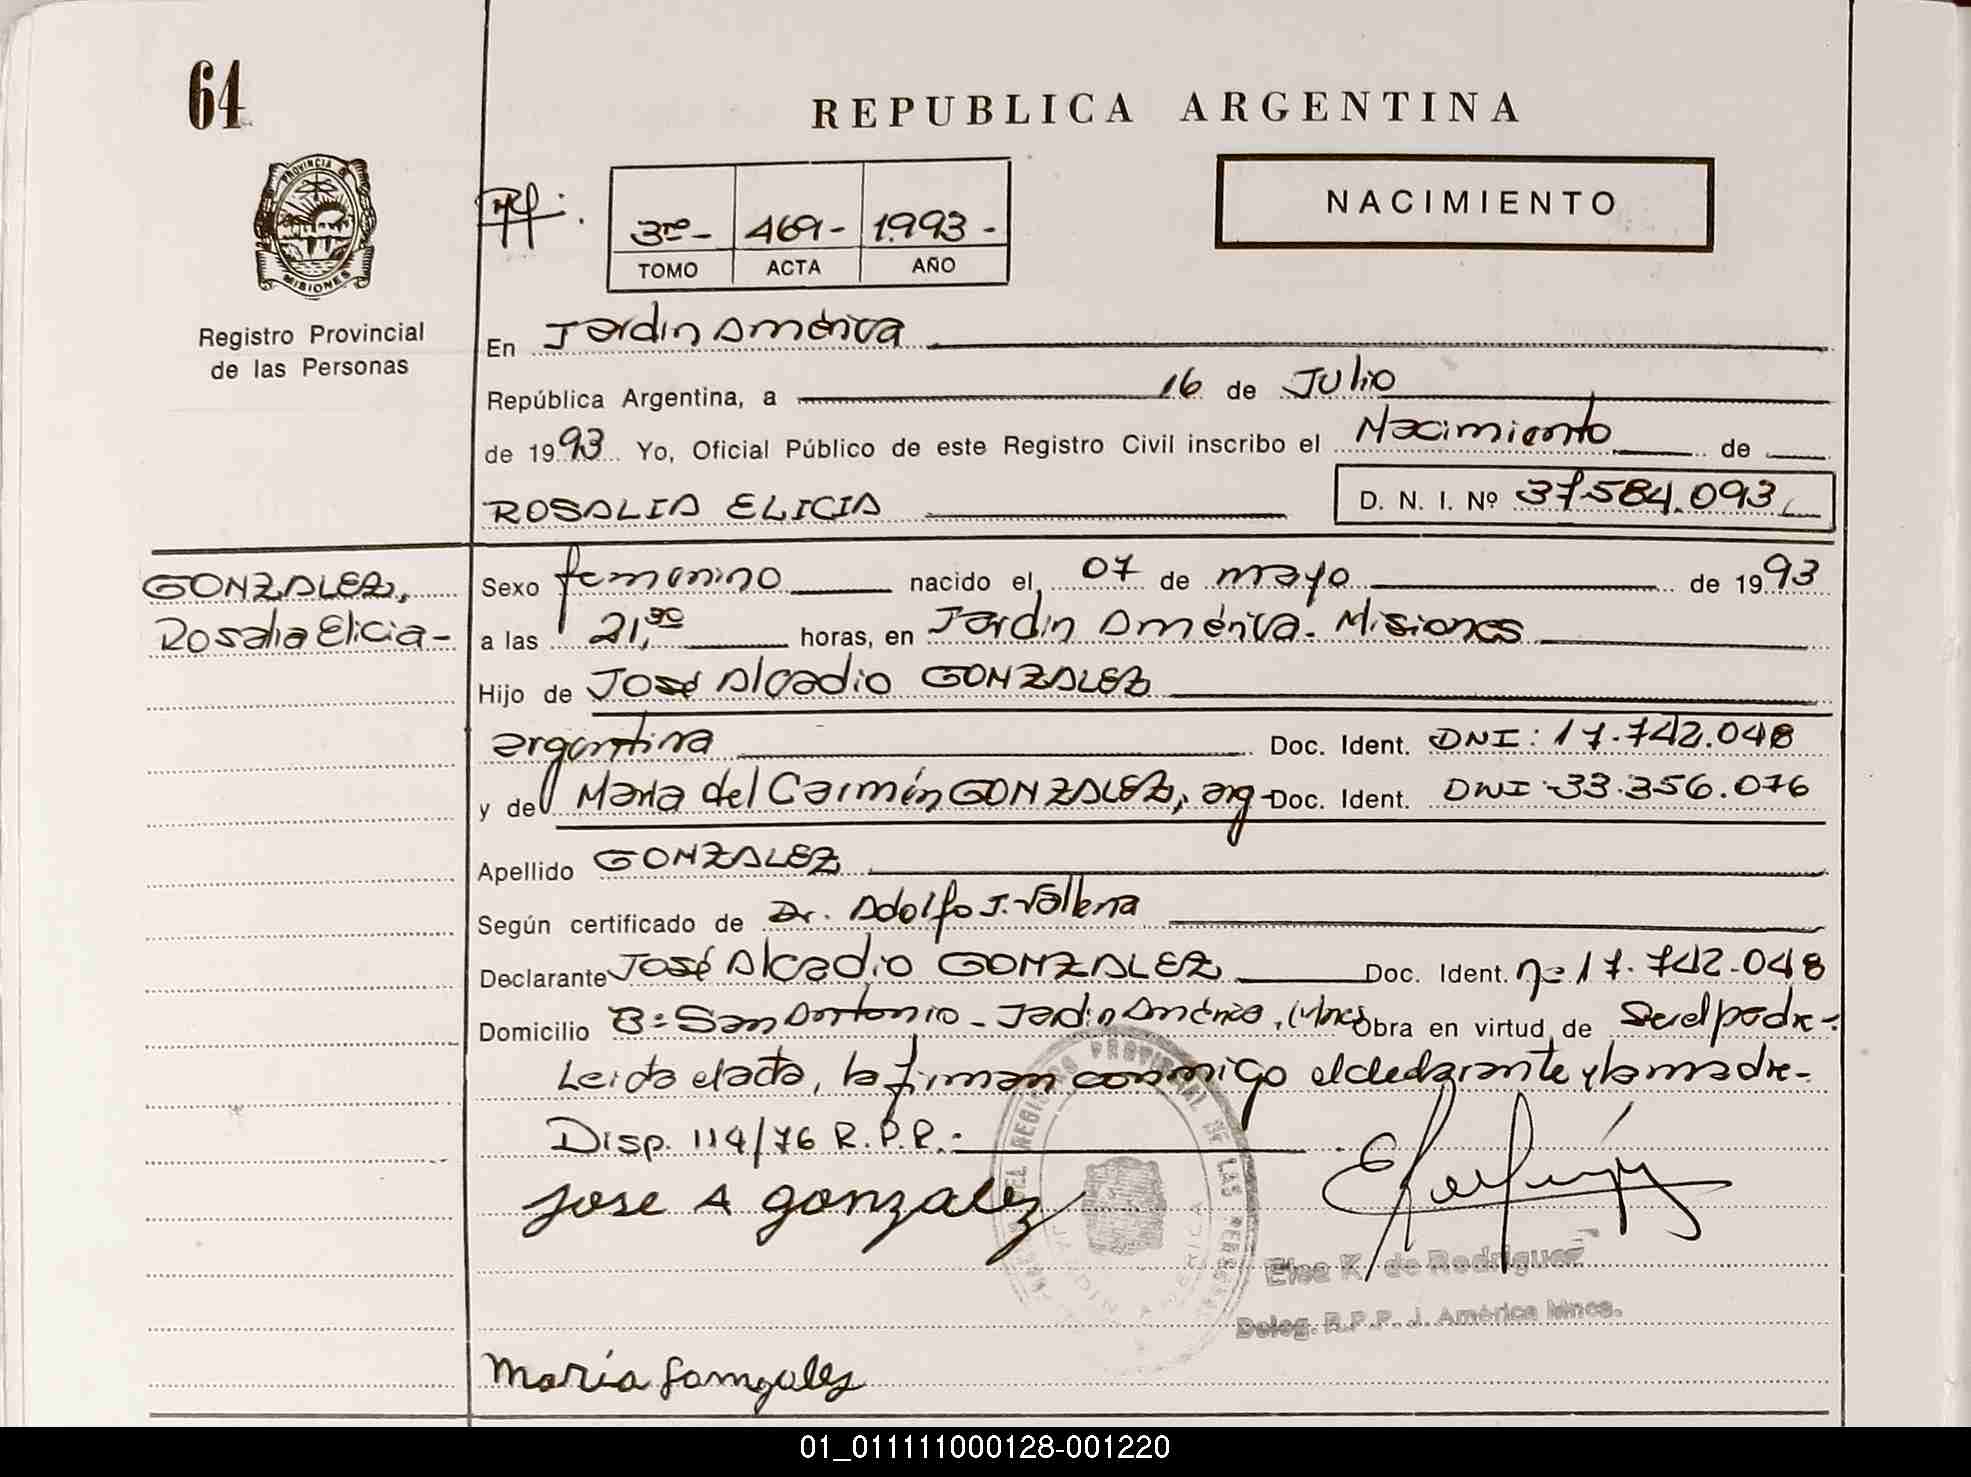 64
REPUBLICA ARGENTINA
PROVINCIA DE
MISIONES
Registro Provincial
de las Personas
3ro- 469- 1993-
TOMO ACTA AÑO
NACIMIENTO
En Jardin América
República Argentina, a 16 de Julio
de 1993 Yo, Oficial Público de este Registro Civil inscribo el Nacimiento de
ROSALIA ELICIA D. N. I. Nº 37.584.093
GONZALEZ,
Rosalia Elicia-
Sexo femenino nacido el 07 de mayo de 1993
a las 21,30 horas, en Jardin América. Misiones
Hijo de José Alcadio GONZALEZ
argentina Doc. Ident. DNI: 17.742.048
y de Maria del Carmén GONZALEZ, arg- Doc. Ident. DNI 33.356.076
Apellido GONZALEZ
Según certificado de Dr. Adolfo J.
Declarante José Alcadio GONZALEZ Doc. Ident. nº 17.742.048
Domicilio Bº San Antonio - Jardin América, Mnes Obra en virtud de Ser el padre-
Leida el acta, la firman conmigo el declarante y la madre-
Disp. 114/76 R.P.P.-
REGISTRO PROVINCIAL DE LAS PERSONAS
JARDIN AMERICA
Jose A gonzalez
Elsa K. de Rodriguez
Deleg. R.P.P. J. América Mnes.
María Gomzalez
01_011111000128-001220